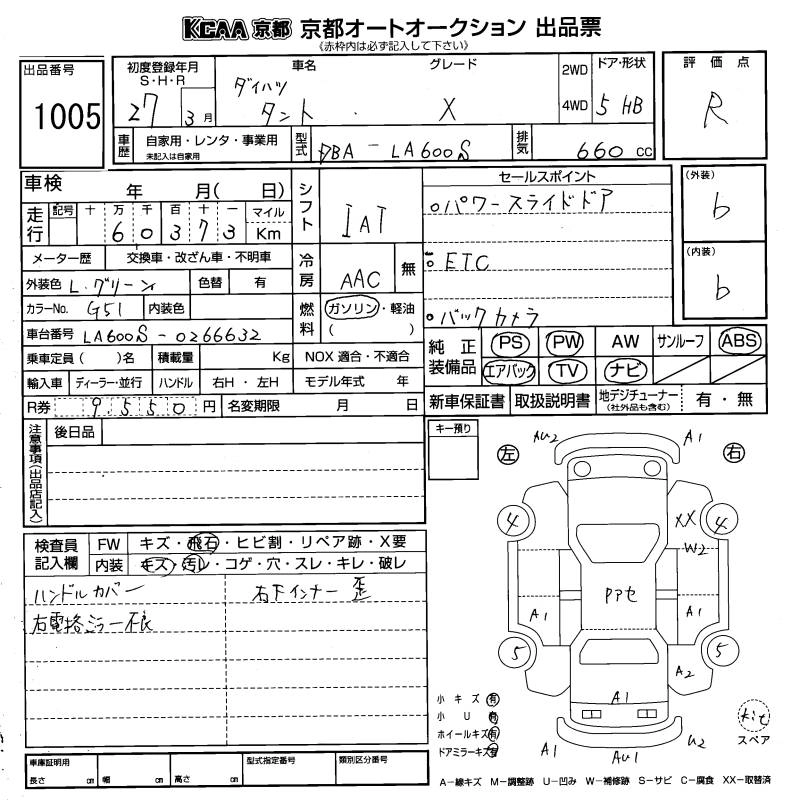 KCAA 京都 京都オートオークション 出品票
《赤枠内は必ず記入して下さい》
出品番号
1005
初度登録年月
S・H・R
27 3 月
車名
グレード
ダイハツ
タント X
2WD
4WD
ドア・形状
5 HB
評価点
R
車歴
自家用・レンタ・事業用
未記入は自家用
型式
DBA - LA600S
排気
660 CC
車検 年 月( 日)
シフト
IAT
走行
記号 十 万 千 百 十 一 マイル
6 0 3 7 3 Km
メーター歴 交換車・改ざん車・不明車
冷房
AAC
無
外装色 L.グリーン 色替 有
カラーNo. G51 内装色
燃料
ガソリン・軽油
( )
車台番号 LA600S-0266632
乗車定員( )名 積載量 Kg NOX 適合・不適合
輸入車 ディーラー・並行 ハンドル 右H・左H モデル年式 年
R券 9,550 円 名変期限 月 日
セールスポイント
○パワースライドドア
○ETC
○バックカメラ
(外装)
b
(内装)
b
純正装備品
PS PW AW サンルーフ ABS
エアバック TV ナビ
新車保証書 取扱説明書 地デジチューナー
(社外品も含む)
有・無
注意事項(出品店記入)
後日品
キー預り
検査員記入欄
FW キズ・飛石・ヒビ割・リペア跡・X要
内装 キズ・汚レ・コゲ・穴・スレ・キレ・破レ
ハンドルカバー
右電格ミラー不良
右下インナー歪
左
右
AU2
A1
4
4
XX
W2
PPセ
A1
A1
5
5
A2
A1
A1
AU1
U2
kit
スペア
小キズ 有
小U 有
ホイールキズ 有
ドアミラーキズ 有
車庫証明用
長さ cm 幅 cm 高さ cm
型式指定番号
類別区分番号
A-線キズ M-調整跡 U-凹み W-補修跡 S-サビ C-腐食 XX-取替済